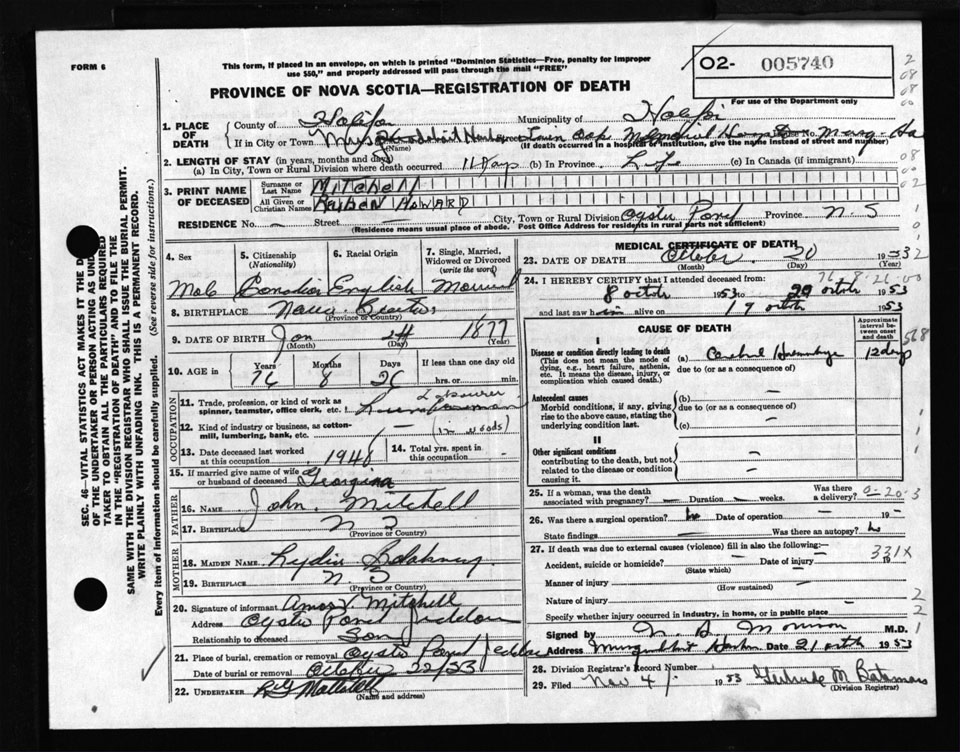 FORM 6
This form, if placed in an envelope, on which is printed "Dominion Statistics—Free, penalty for improper
use $50," and properly addressed will pass through the mail "FREE"
O2- 005740
For use of the Department only
PROVINCE OF NOVA SCOTIA—REGISTRATION OF DEATH
SEC. 46—VITAL STATISTICS ACT MAKES IT THE D
OF THE UNDERTAKER OR PERSON ACTING AS UND
TAKER TO OBTAIN ALL THE PARTICULARS REQUIRED
IN THE "REGISTRATION OF DEATH" AND TO FILE THE
SAME WITH THE DIVISION REGISTRAR WHO SHALL ISSUE THE BURIAL PERMIT.
WRITE PLAINLY WITH UNFADING INK. THIS IS A PERMANENT RECORD.
Every item of information should be carefully supplied. (See reverse side for instructions.)
1. PLACE OF DEATH
County of Halifax Municipality of Halifax
If in City or Town Street Memorial
(Name) (If death occurred in a hospital or institution, give the name instead of street and number)
2. LENGTH OF STAY (in years, months and days)
(a) In City, Town or Rural Division where death occurred 11 days (b) In Province (c) In Canada (if immigrant)
3. PRINT NAME OF DECEASED
Surname or Last Name MITCHELL
All Given or Christian Names REUBEN HOWARD
RESIDENCE No. – Street – City, Town or Rural Division Oyster Pond Province N.S
(Residence means usual place of abode. Post Office Address for residents in rural parts not sufficient)
4. Sex
Male
5. Citizenship (Nationality)
Canadian
6. Racial Origin
English
7. Single, Married, Widowed or Divorced (write the word)
Married
8. BIRTHPLACE Nova Scotia
(Province or Country)
9. DATE OF BIRTH Jan 24 1877
(Month) (Day) (Year)
10. AGE in Years Months Days If less than one day old
76 8 26 hrs. or min.
OCCUPATION
11. Trade, profession, or kind of work as
spinner, teamster, office clerk, etc. Labourer
12. Kind of industry or business, as cotton-
mill, lumbering, bank, etc. – (in woods)
13. Date deceased last worked
at this occupation 1948
14. Total yrs. spent in
this occupation –
15. If married give name of wife
or husband of deceased Georgina
FATHER
16. NAME John Mitchell
17. BIRTHPLACE N S
(Province or Country)
MOTHER
18. MAIDEN NAME Lydia
19. BIRTHPLACE N S
(Province or Country)
20. Signature of informant Amos Mitchell
Address Oyster Pond Jeddore
Relationship to deceased Son
21. Place of burial, cremation or removal Oyster Pond Jeddore
Date of burial or removal October 22/53
22. UNDERTAKER
(Name and address)
MEDICAL CERTIFICATE OF DEATH
23. DATE OF DEATH October 20 1953
(Month) (Day) (Year)
24. I HEREBY CERTIFY that I attended deceased from:
8 1953 to 20 1953
and last saw h im alive on 19 1953
CAUSE OF DEATH
Approximate interval between onset and death
I
Disease or condition directly leading to death
(This does not mean the mode of
dying, e.g., heart failure, asthenia,
etc. It means the disease, injury, or
complication which caused death.)
(a) Cerebral Haemorrhage 12 days
due to (or as a consequence of)
Antecedent causes
Morbid conditions, if any, giving
rise to the above cause, stating the
underlying condition last.
(b) –
due to (or as a consequence of)
(c) –
II
Other significant conditions
contributing to the death, but not
related to the disease or condition
causing it.
25. If a woman, was the death
associated with pregnancy? – Duration – weeks. Was there a delivery?
26. Was there a surgical operation? no Date of operation – 19 –
State findings – Was there an autopsy?
27. If death was due to external causes (violence) fill in also the following:–
331X
Accident, suicide or homicide? Date of injury 19
(State which)
Manner of injury –
(How sustained)
Nature of injury –
Specify whether injury occurred in industry, in home, or in public place –
Signed by M.D.
Address Musquodoboit Harbor Date 21 1953
28. Division Registrar's Record Number
29. Filed Nov 4 1953 Gertrude M
(Division Registrar)